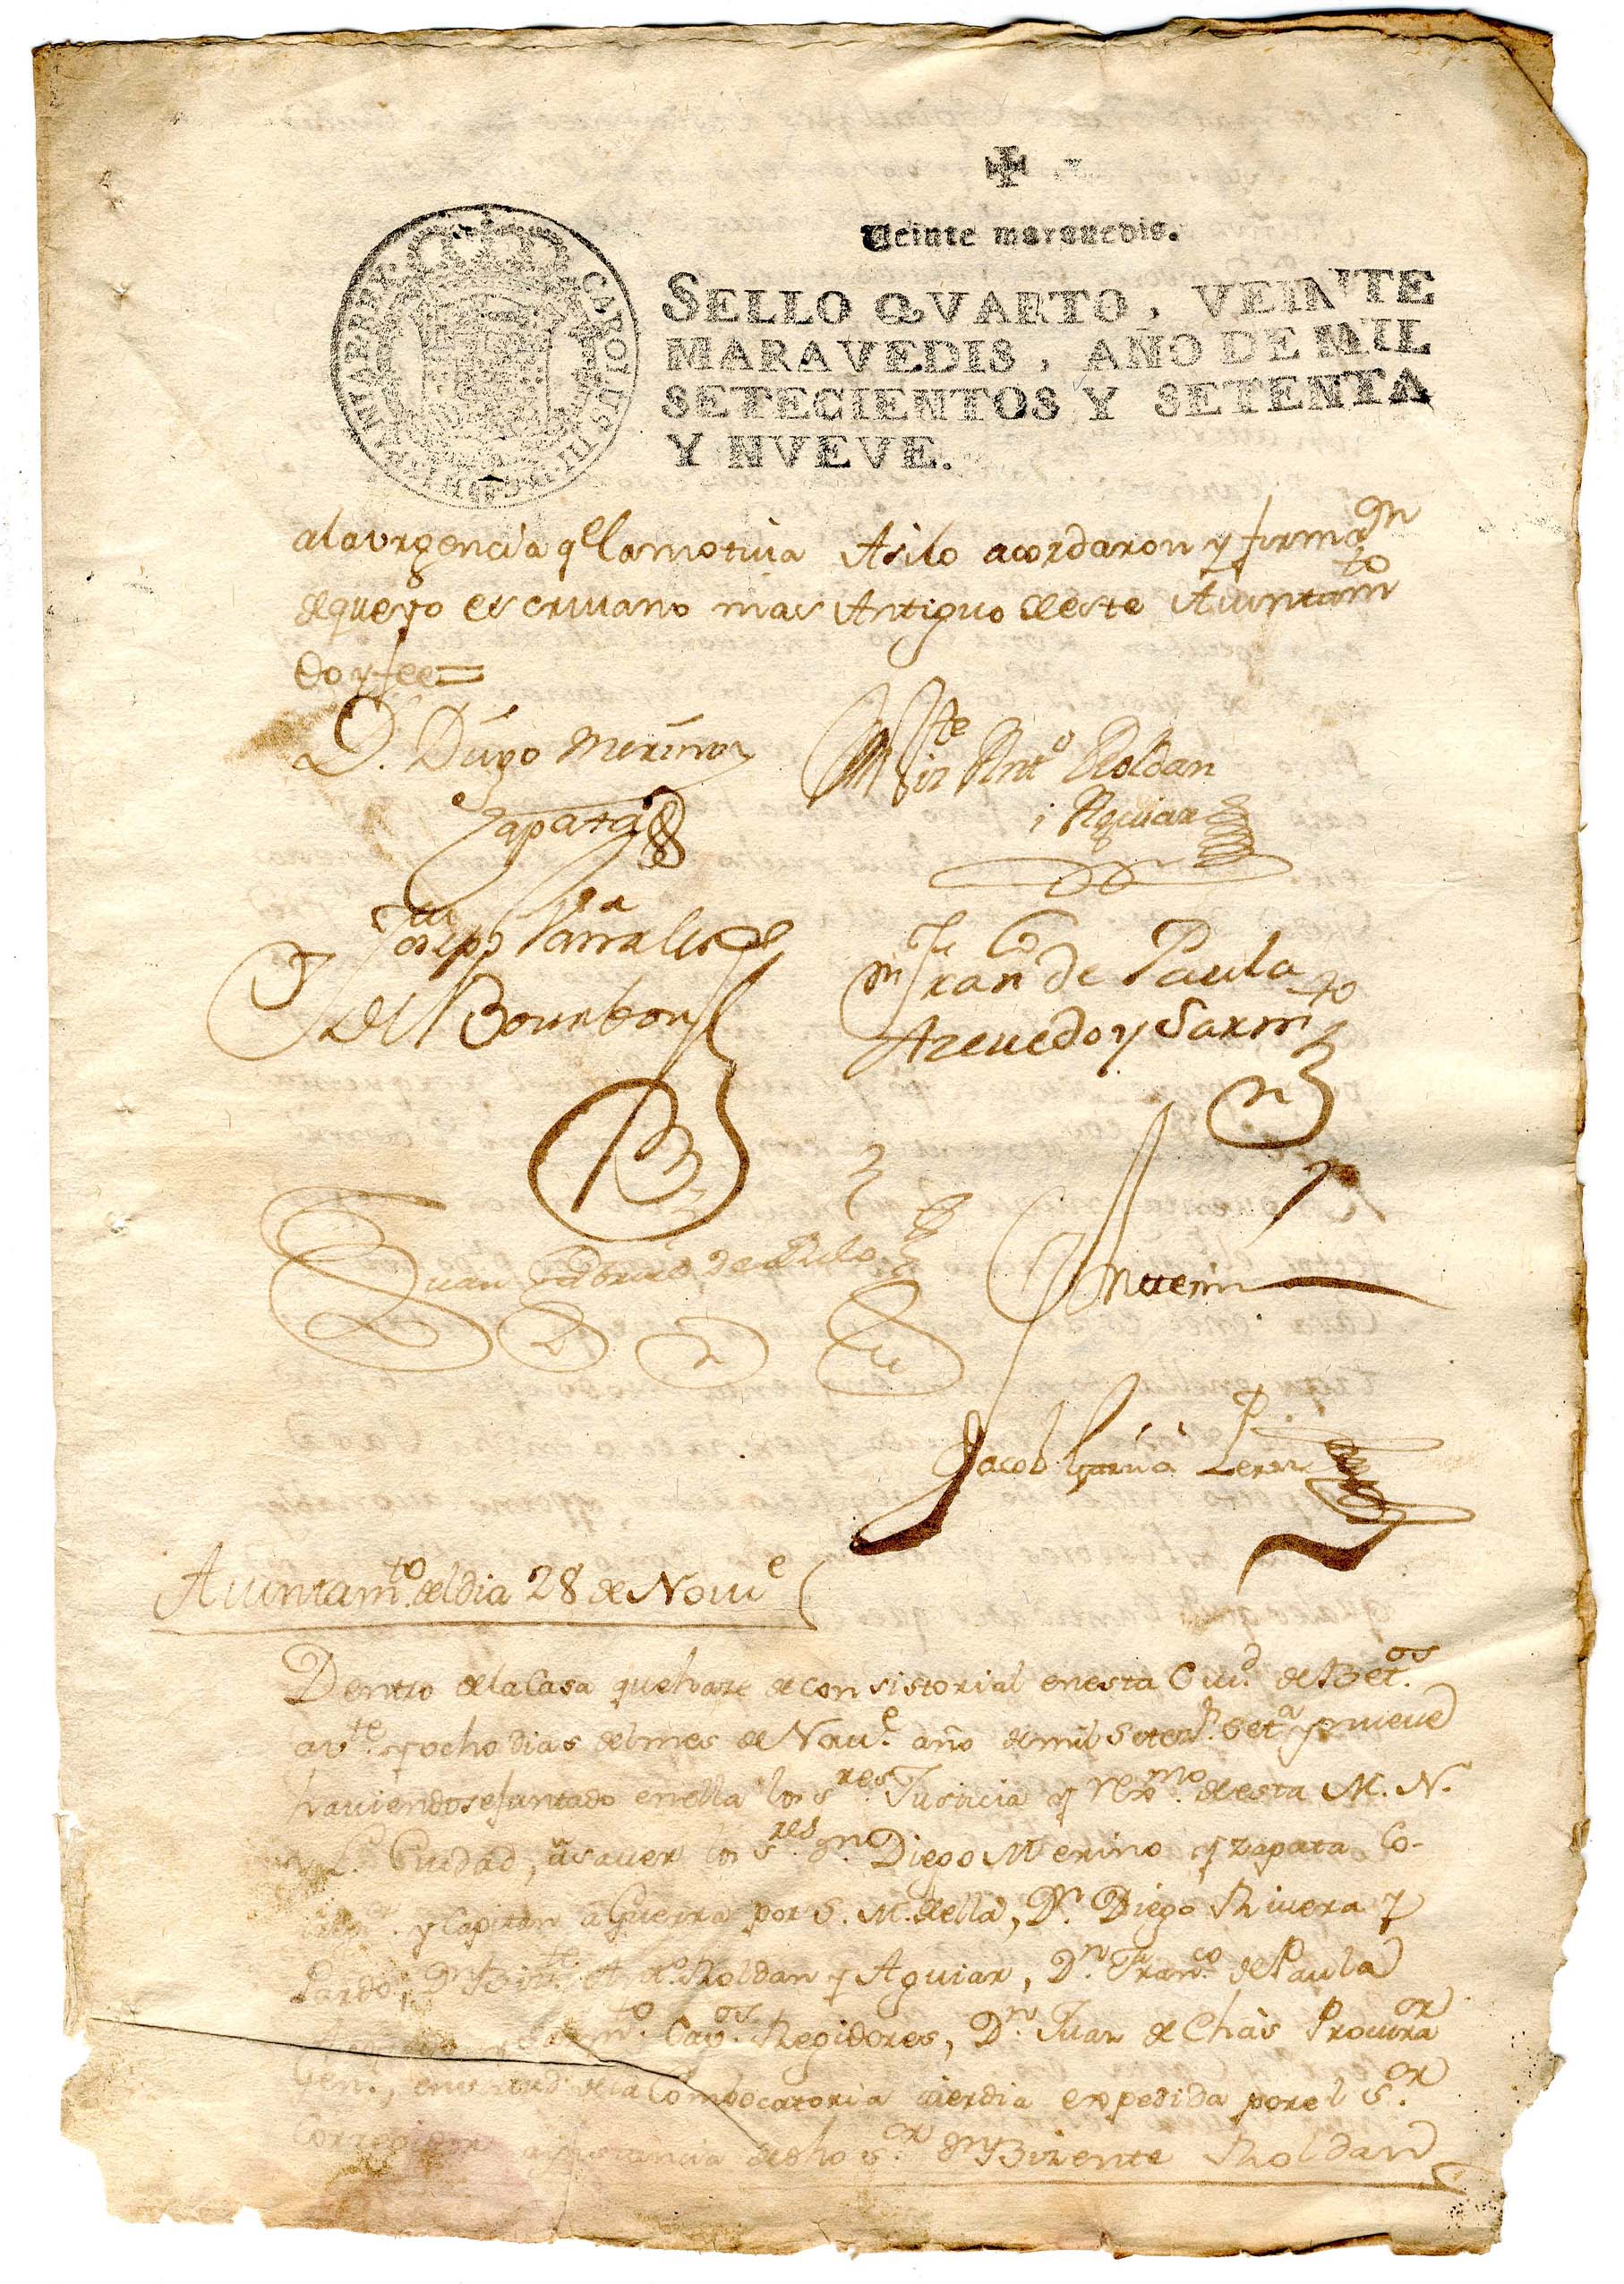 Veinte maravedis.
SELLO QVARTO, VEINTE
MARAVEDIS, AÑO DE MIL
SETECIENTOS Y SETENTA
Y NVEVE.
CAROLUS III. D. G. HISPANIAR. REX
ala vrgencia qe la motiua Asilo acordaron y firman
de que yo escriuano mas Antiguo deste Aiuntamto
doy fee=
D. Diego Merino y
Zapata
Bizte Anto Roldan
i Aguiar
Joseph
de Bourbon
Dn Franco de Paula
Azeuedo y Sarmto
Juan Gabriel de
Antemi
Jacob Garcia Perez
Aiuntamto del dia 28 de Noue
Dentro de la Casa que haze de consistorial en esta Ciud de Betos
a vte y ocho dias del mes de Noue año de mil Setezs Seta y nueve
haviendose juntado en ella los Sres Justicia y Rexmo desta M. N.
y L. Ciudad, a saver los Sres Dn Diego Merino y Zapata Co-
rregor y Capitan a Guerra por S. M. della, Dn Diego Rivera y
Pardo, Dn Bizte Anto Roldan y Aguiar, Dn Franco de Paula
Sarmto Cavos Regidores, Dn Juan de Chàs Procuraor
Gen., en virtud de la Combocatoria aierdia expedida por el Sor
Corregidor a instancia de dho Sor Dn Bizente Roldan